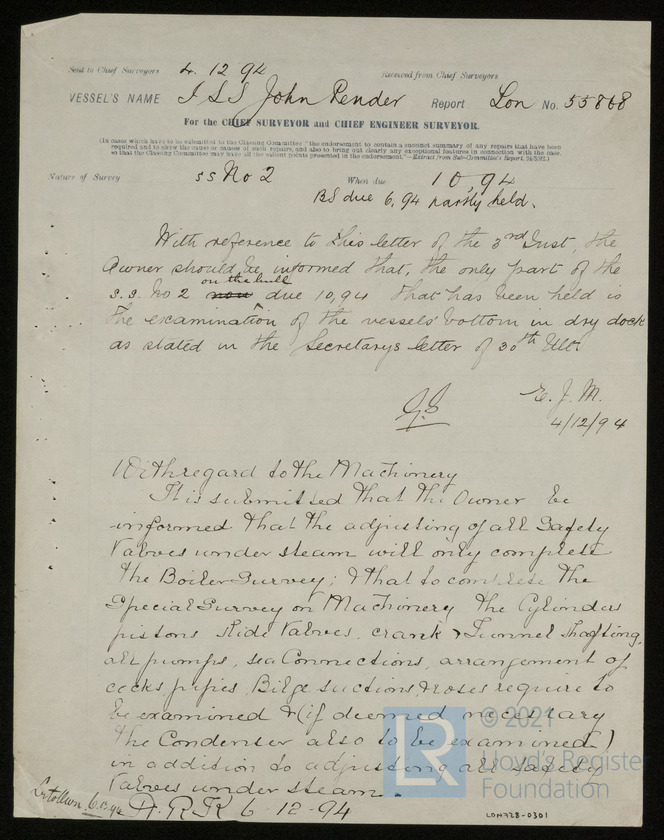 Sent to Chief Surveyors 4.12 94 Received from Chief Surveyors
VESSEL'S NAME ISS John Pender Report Lon No. 55868
For the CHIEF SURVEYOR and CHIEF ENGINEER SURVEYOR.
(In cases which have to be submitted to the Classing Committee "the endorsement to contain a succinct summary of any repairs that have been
required and to show the cause or causes of such repairs, and also to bring out clearly any exceptional features in connection with the case,
so that the Classing Committee may have all the salient points presented in the endorsement."—Extract from Sub-Committee's Report,
Nature of Survey SS No 2 When due 10,94
BS due 6,94 partly held.
With reference to this letter of the 3rd Inst, the
Owner should be informed that, the only part of the
on the hull
S.S. No 2 due 10,94 that has been held is
the examination of the vessels' bottom in dry dock
as stated in the Secretarys letter of 30th Ult.
E. J. M.
4/12/94
With regard to the Machinery
It is submitted that the Owner be
informed that the adjusting of all Safety
Valves under steam will only complete
the Boiler Survey; & that to complete the
Special Survey on Machinery the Cylinders
pistons slide Valves, crank & Tunnel shafting,
all pumps, sea Connections, arrangement of
cocks pipes, Bilge suctions & roses require to
be examined & (if deemed necessary
the Condenser also to be examined)
in addition to adjusting all safety
Valves under steam.
A.R.K 6-12-94
LDN728-0301
LR
© 2021
Lloyd's Register
Foundation